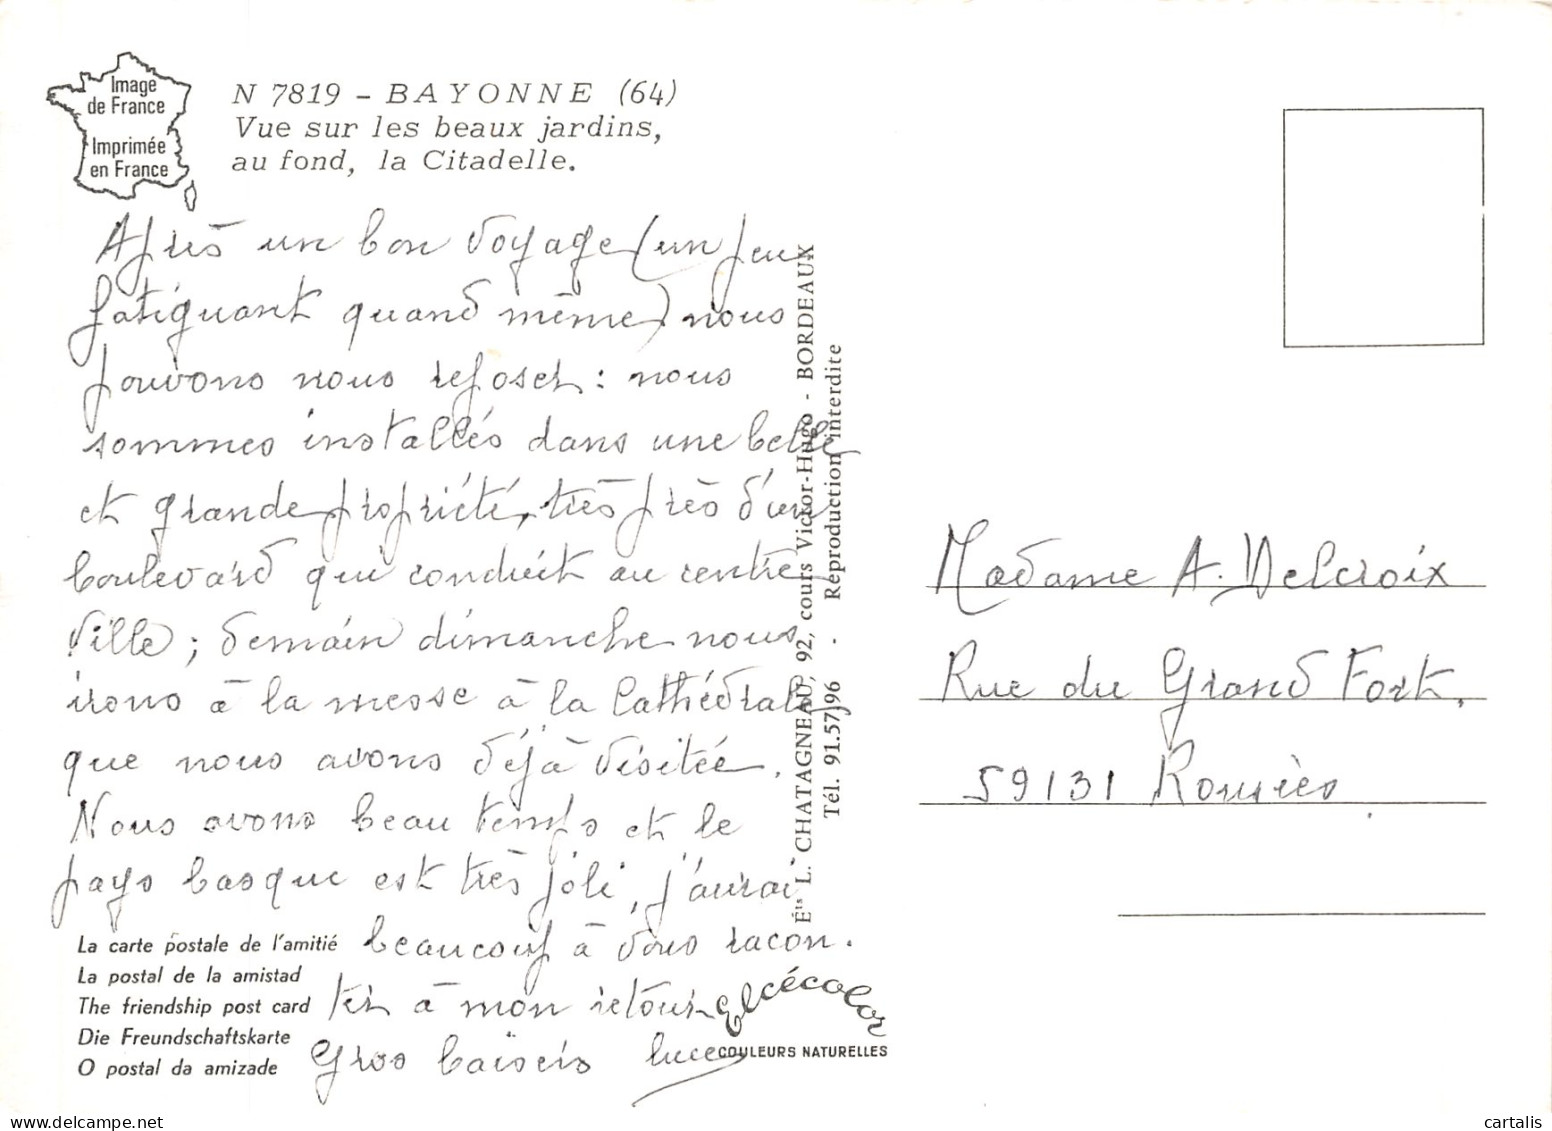 Image
de France
Imprimée
en France
N 7819 - BAYONNE (64)
Vue sur les beaux jardins,
au fond, la Citadelle.
Après un bon voyage (un peu
fatiguant quand même) nous
pouvons nous reposer : nous
sommes installés dans une belle
et grande propriété, très près d'un
boulevard qui conduit au centre
ville ; demain dimanche nous
irons à la messe à la Cathédrale
que nous avons déjà visitée.
Nous avons beau temps et le
pays basque est très joli, j'aurai
beaucoup à vous racon.
ter à mon retour
Gros baisers Luce
La carte postale de l'amitié
La postal de la amistad
The friendship post card
Die Freundschaftskarte
O postal da amizade
Éts L. CHATAGNEAU, 92, cours Victor-Hugo - BORDEAUX
Tél. 91.57.96 - Reproduction interdite
elcécolor
COULEURS NATURELLES
Madame A. Delcroix
Rue du Grand Fort.
59131 Rousies
cartalis